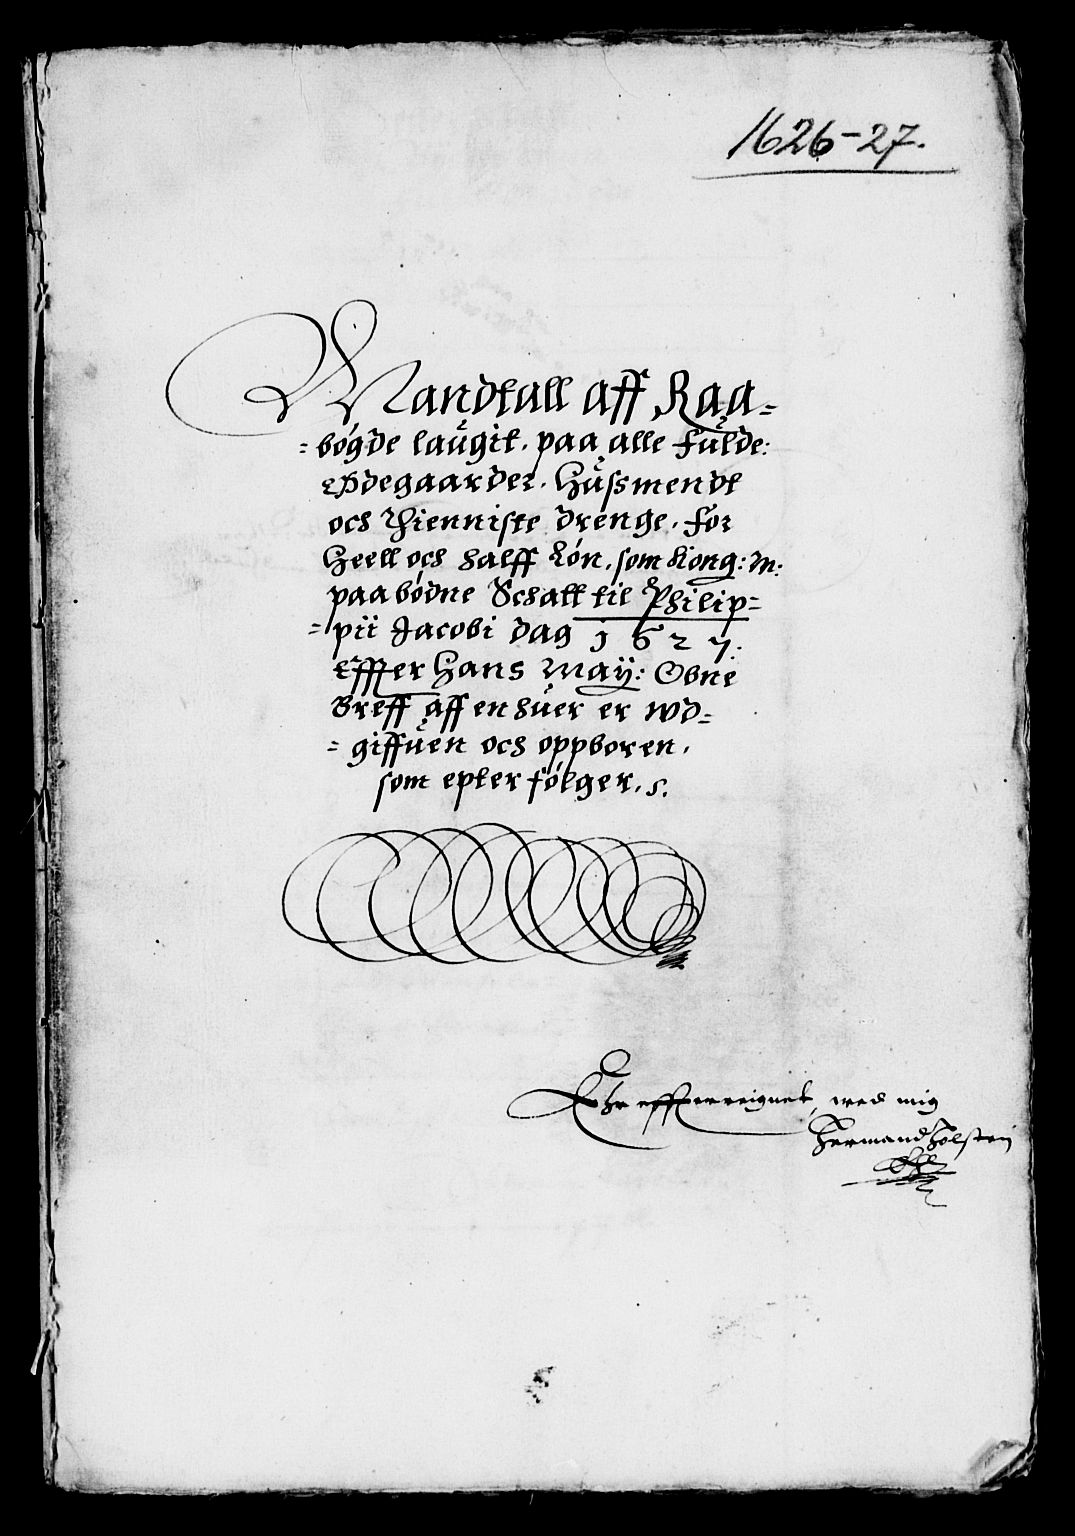 1626-27.
Mandtall aff Raa=
=bøgde laugit. paa alle fulde:
Ødegaarder. Hussmendt
och Thienniste drenge. for
Heell och halff Løn. som Kong: M:
paabødne Schatt til Philip=
=pii Jacobi dag 1627:
Effter Hans May: Obne
Breff aff en huer er wd=
=giffuen och oppboren.
som epter følger. s.
Ehr effterreignet, wed mig
Hermand Holsten